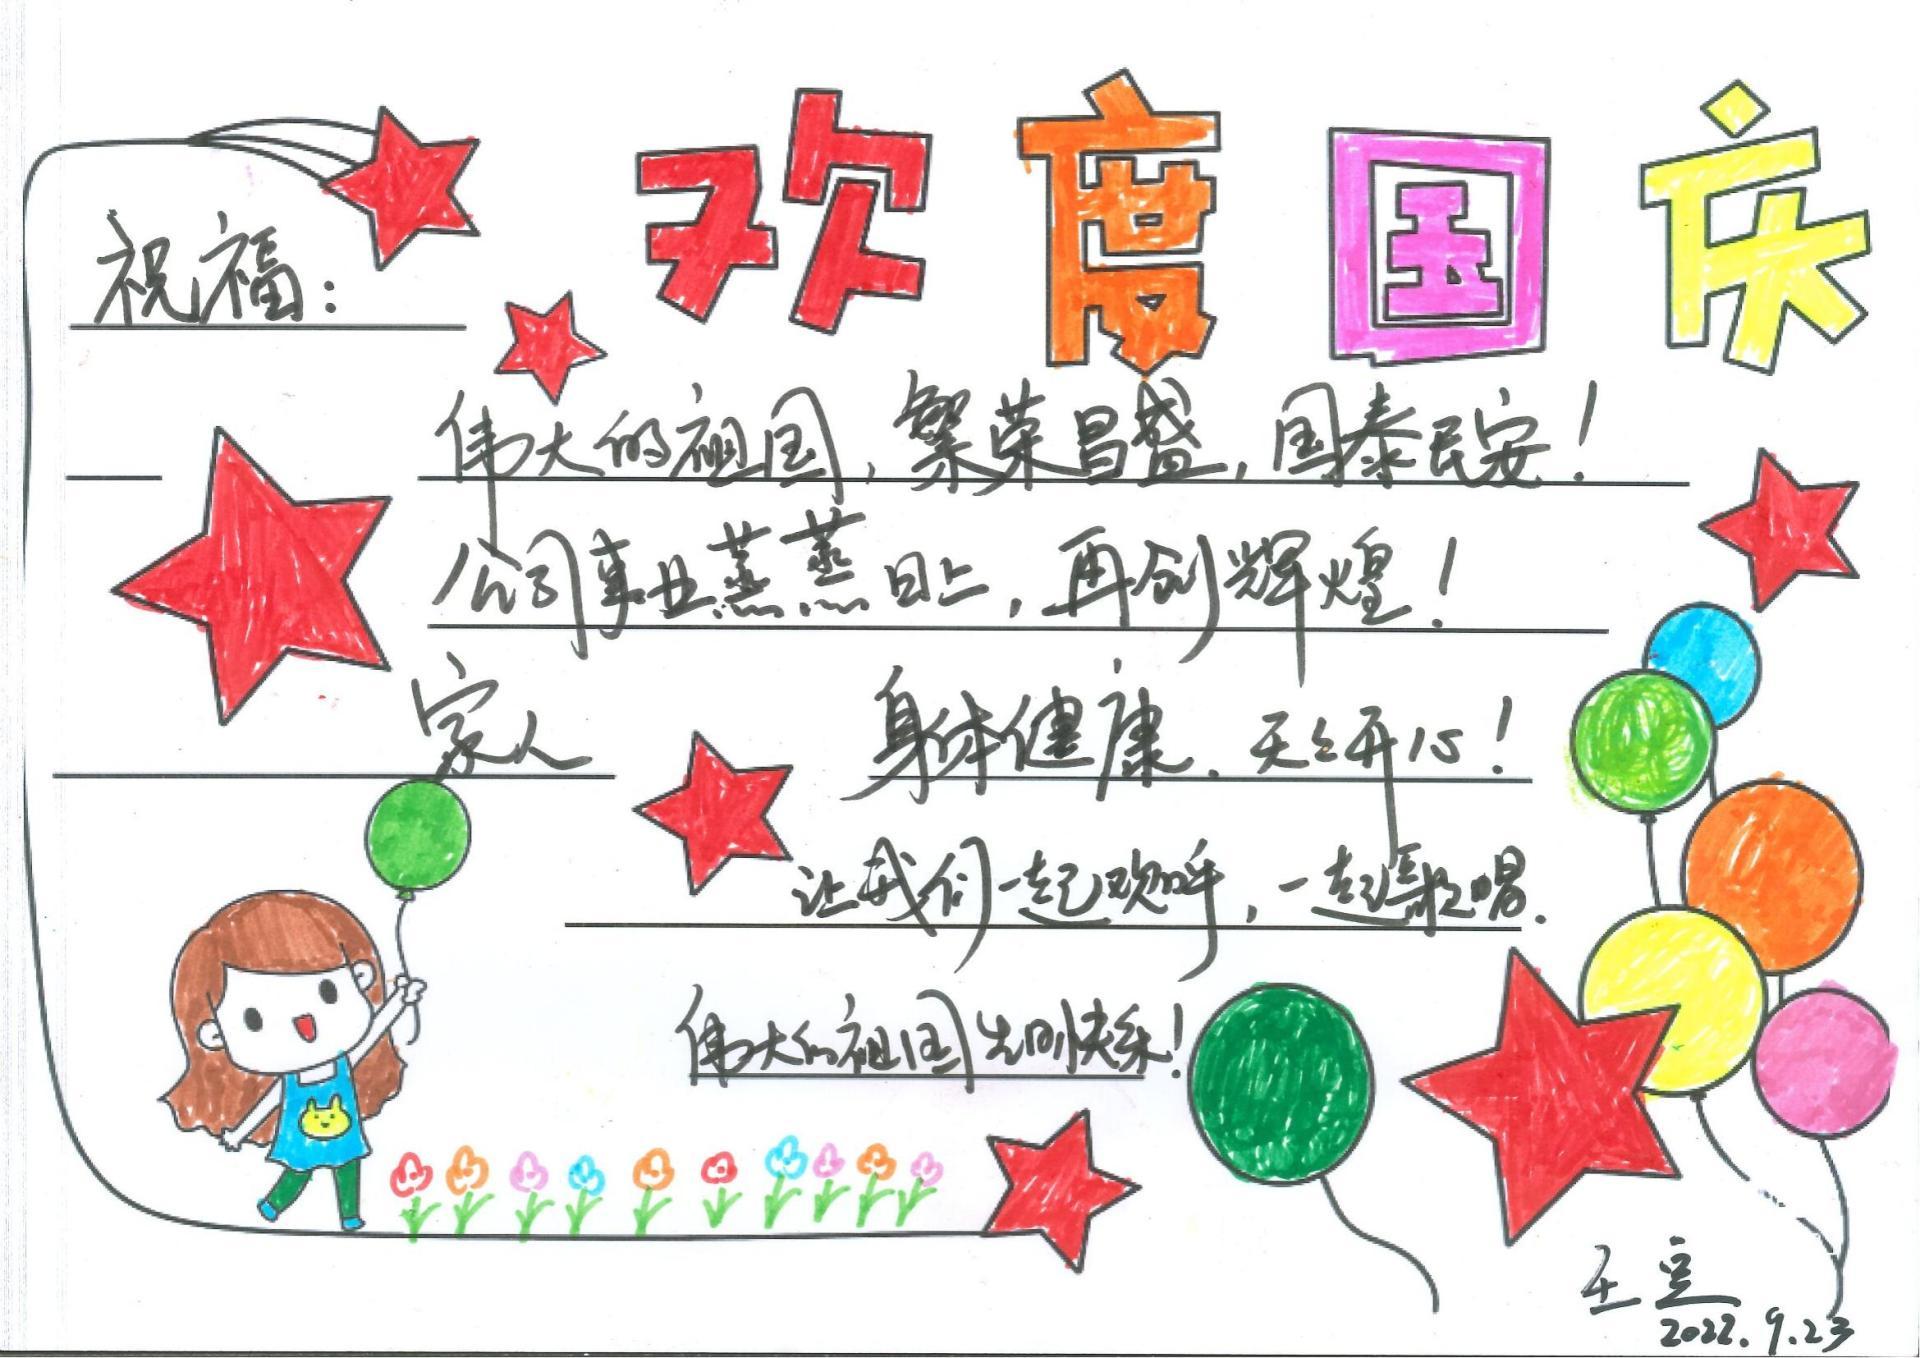 欢度国庆
祝福:
伟大的祖国,繁荣昌盛,国泰民安!
公司事业蒸蒸日上,再创辉煌!
家人 身体健康、天天开心!
让我们一起欢呼,一起歌唱.
伟大的祖国生日快乐!
王豆
2022.9.23